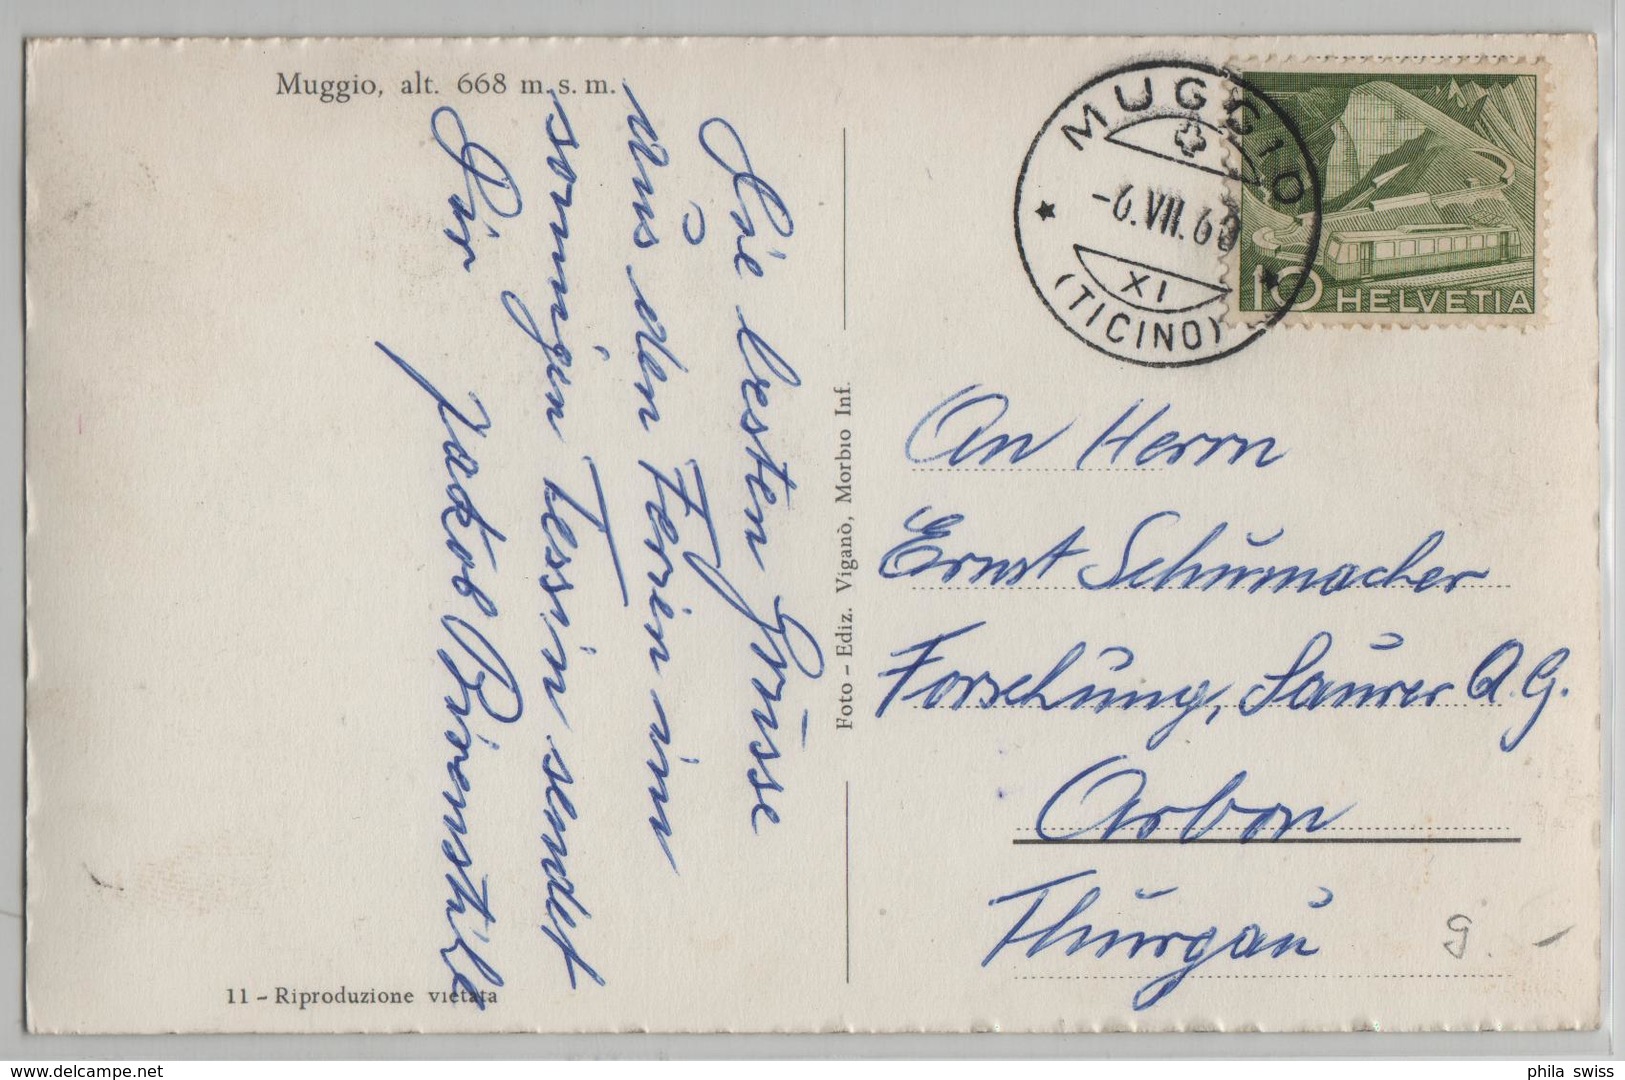 Muggio, alt. 668 m. s. m.
Die besten Grüsse
Aus den Ferien im
sonnigen Tessin sendet
Dir Jakob Bürenstihle
11 - Riproduzione vietata
Foto - Ediz. Viganò, Morbio Inf.
MUGGIO
-6.VII.60
XI
(TICINO)
10 HELVETIA
An Herrn
Ernst Schumacher
Forschung, Saurer A.G.
Arbon
Thurgau
g. -
phila swiss